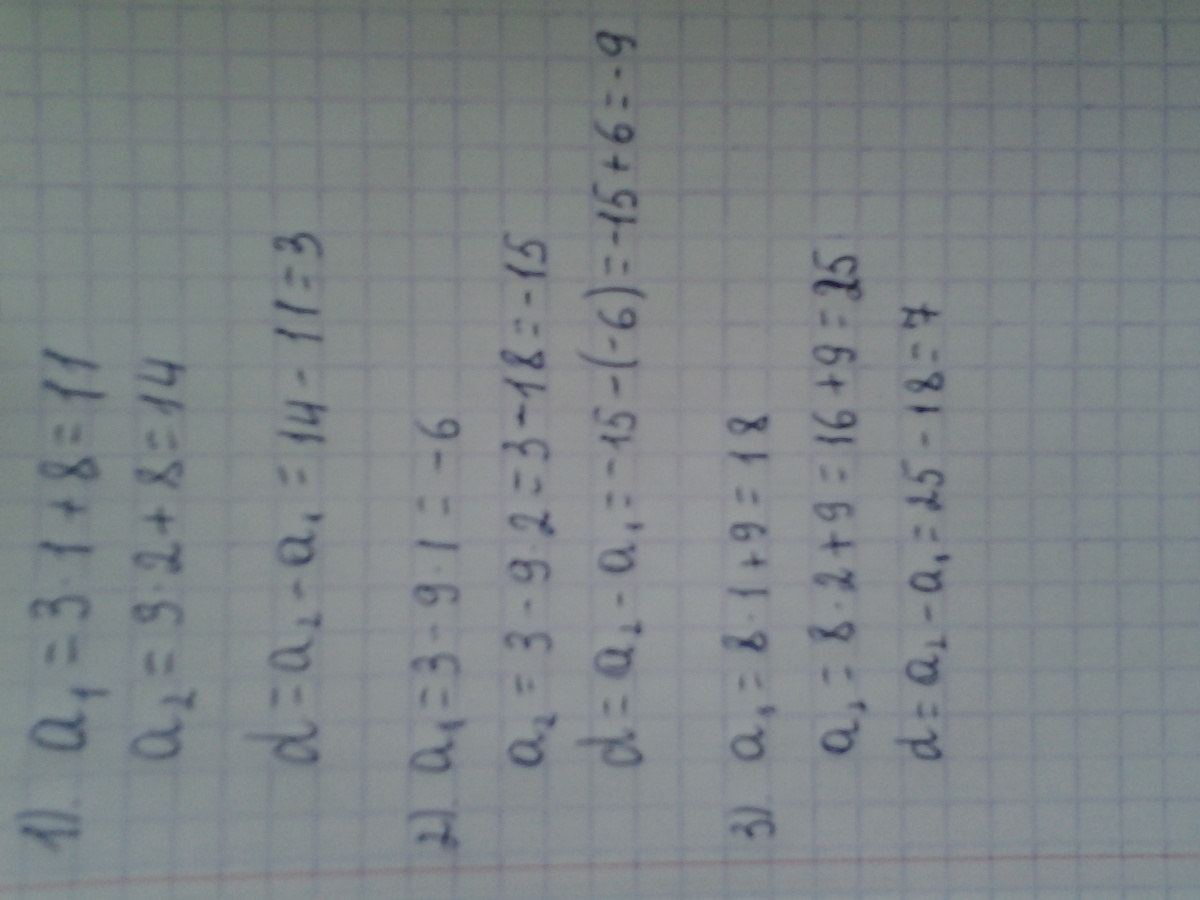 1). a₁ = 3·1+8=11
a₂ = 3·2+8=14
d=a₂-a₁=14-11=3
2) a₁=3-9·1=-6
a₂=3-9·2=3-18=-15
d=a₂-a₁=-15-(-6)=-15+6=-9
3) a₁=8·1+9=18
a₂=8·2+9=16+9=25
d=a₂-a₁=25-18=7